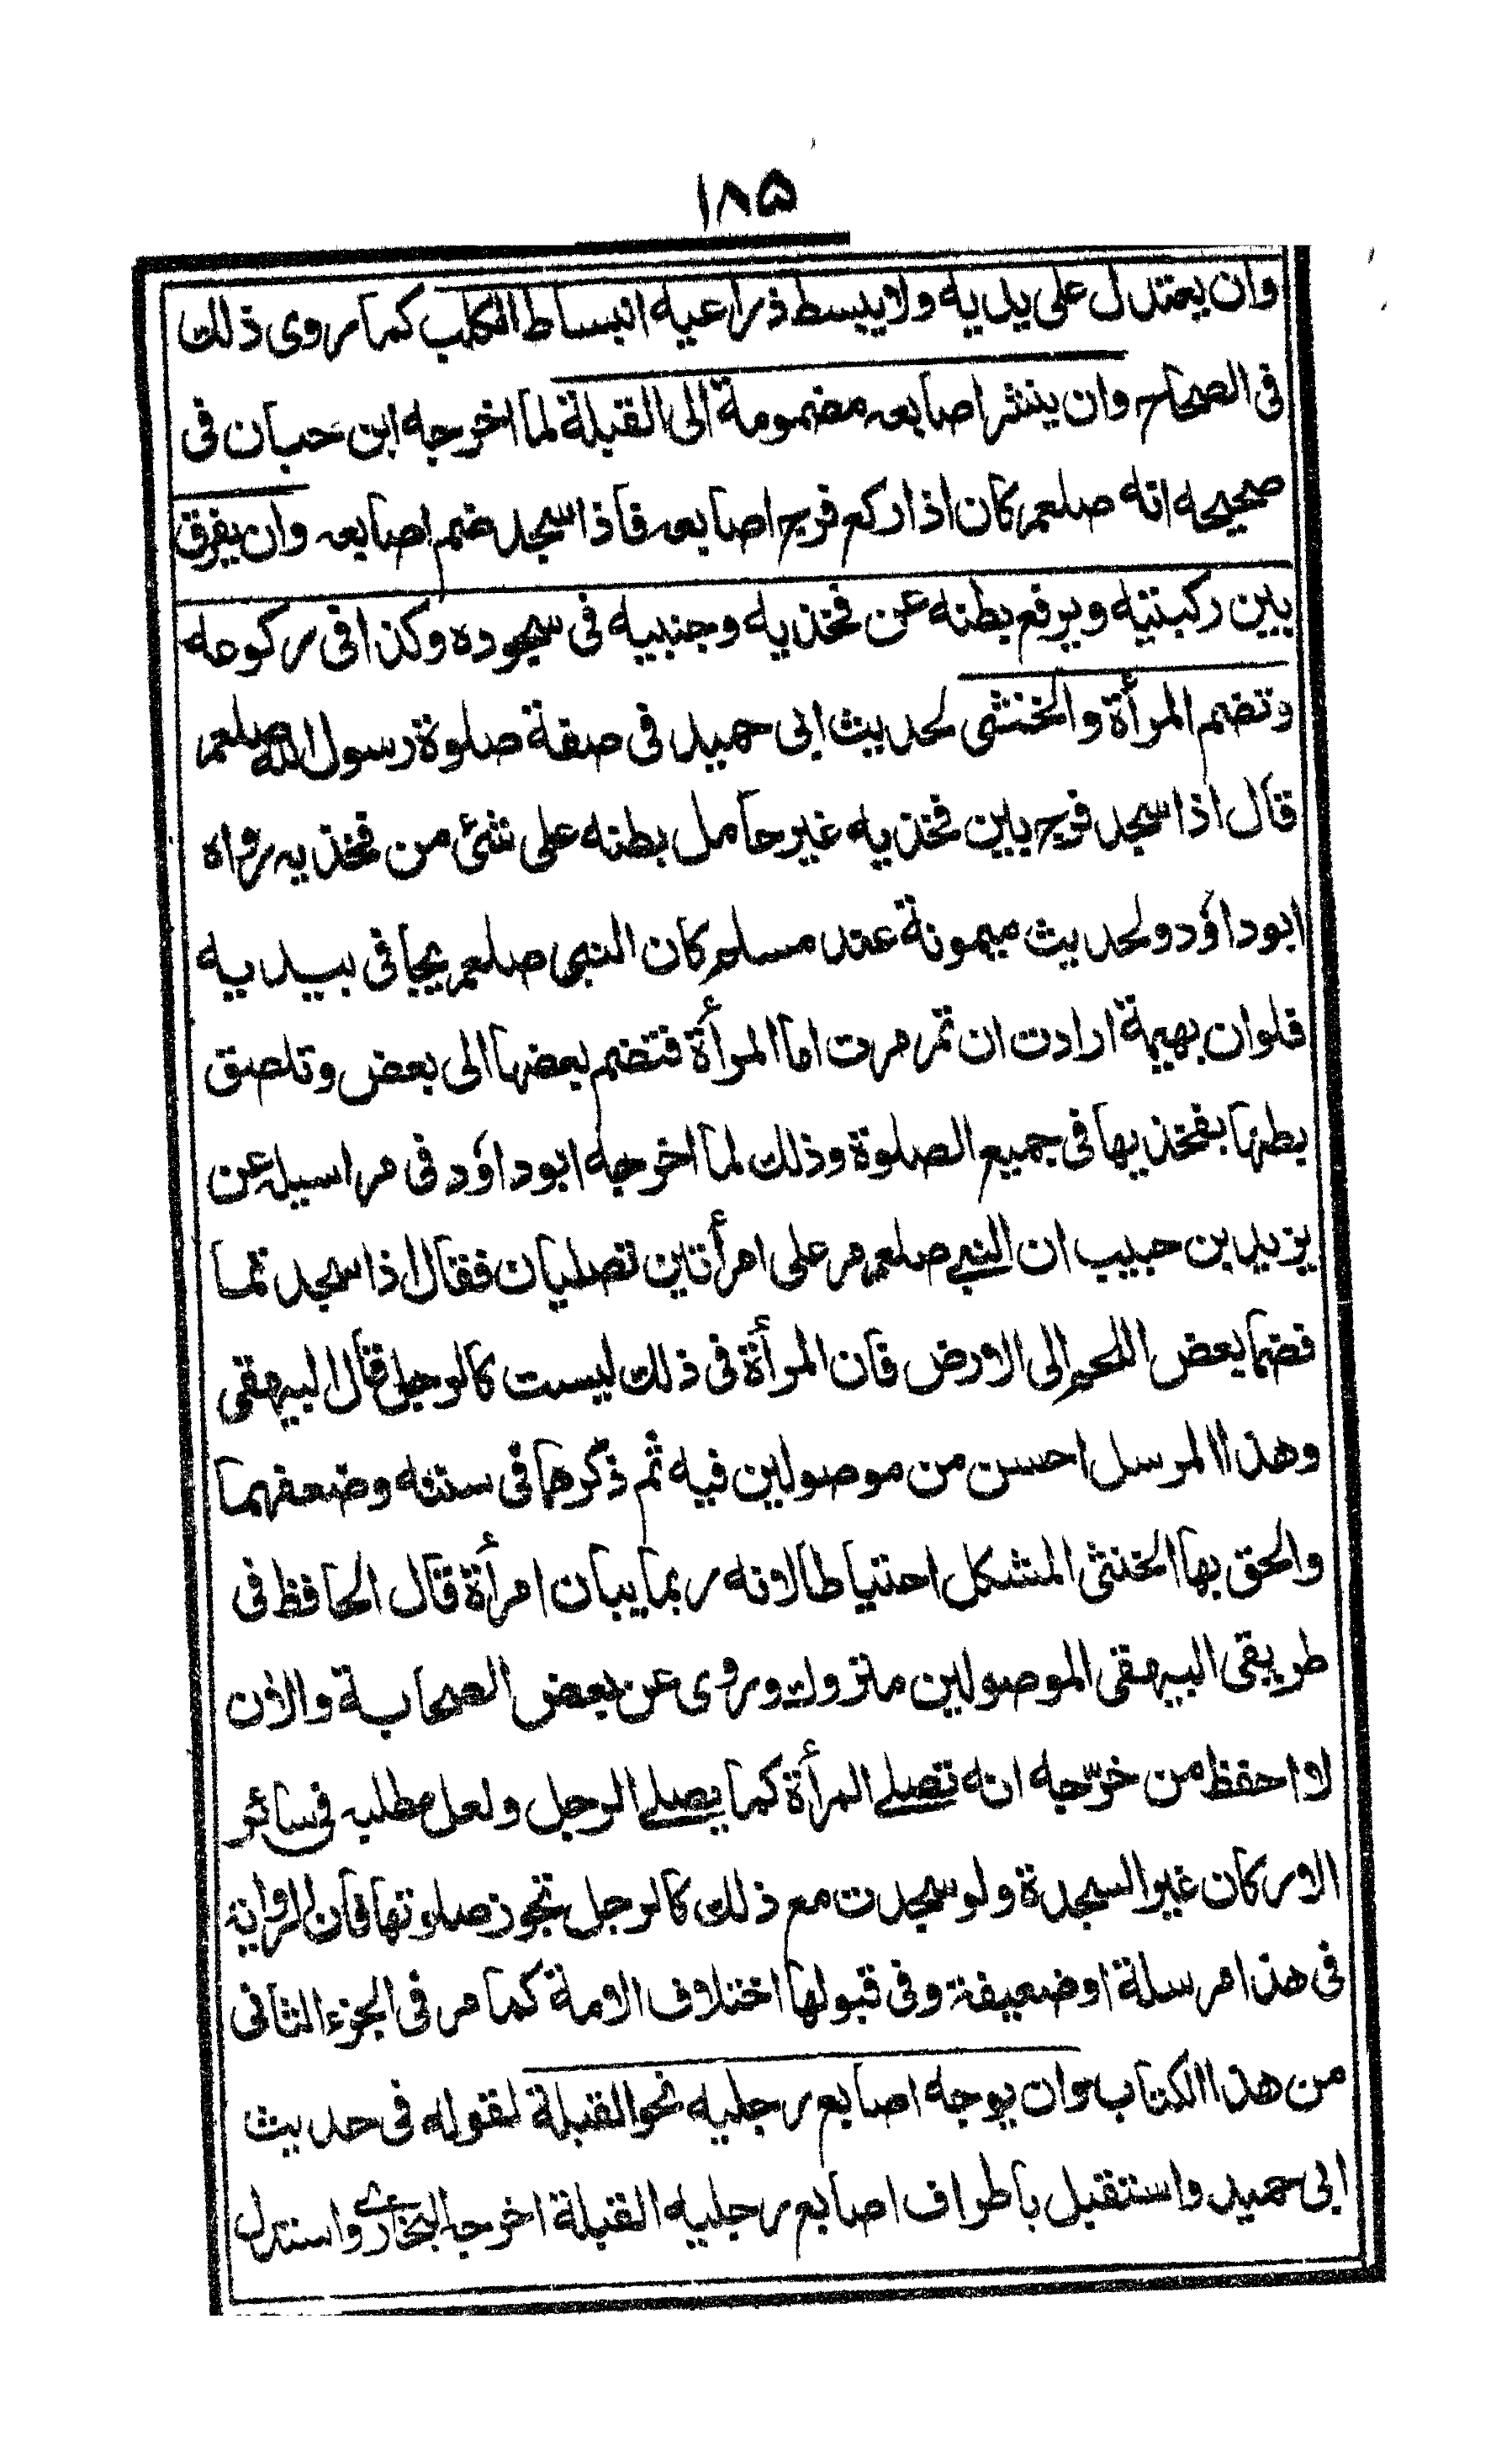 ۱۸۵
وان يعتدل على يديه ولا يبسط ذراعيه انبساط الكلب كما روى ذلك
فى الصحاح وان ينشر اصابعه مضمومة الى القبلة لما اخرجه ابن حبان فى
صحيحه انه صلعم كان اذا ركع فرج اصابعه فاذا سجد ضم اصابعه وان يفرق
بين ركبتيه ويرفع بطنه عن فخذيه وجنبيه فى سجوده وكذا فى ركوعه
وتضم المرأة والخنثى لحديث ابى حميد فى صفة صلوة رسول الله صلعم
قال اذا سجد فرج بين فخذيه غير حامل بطنه على شئ من فخذيه رواه
ابو داؤد ولحديث ميمونة عند مسلم كان النبى صلعم يجافى بيديه
فلو ان بهيمة ارادت ان تمر مرت اما المرأة فتضم بعضها الى بعض وتلصق
بطنها بفخذيها فى جميع الصلوة وذلك لما اخرجه ابو داؤد فى مراسيله عن
يزيد بن حبيب ان النبى صلعم مر على امرأتين تصليان فقال اذا سجدتما
فضما بعض اللحم الى الارض فان المرأة فى ذلك ليست كالرجل قال البيهقى
وهذا المرسل احسن من موصولين فيه ثم ذكرهما فى سننه وضعفهما
والحق بها الخنثى المشكل احتياطا لانه ربما يبان امرأة قال الحافظ فى
طريقى البيهقى الموصولين متروك وروى عن بعض الصحابة والأن
لا احفظ من خرّجه انه تصلى المرأة كما يصلى الرجل ولعل مطلبه فى سائر
الاركان غير السجدة ولو سجدت مع ذلك كالرجل تجوز صلوتها فان الرواية
فى هذا مرسلة او ضعيفة وفى قبولها اختلاف الامة كما مر فى الجزء الثانى
من هذا الكتاب وان يوجه اصابع رجليه نحو القبلة لقوله فى حديث
ابى حميد واستقبل باطراف اصابع رجليه القبلة اخرجه البخارى واستدل